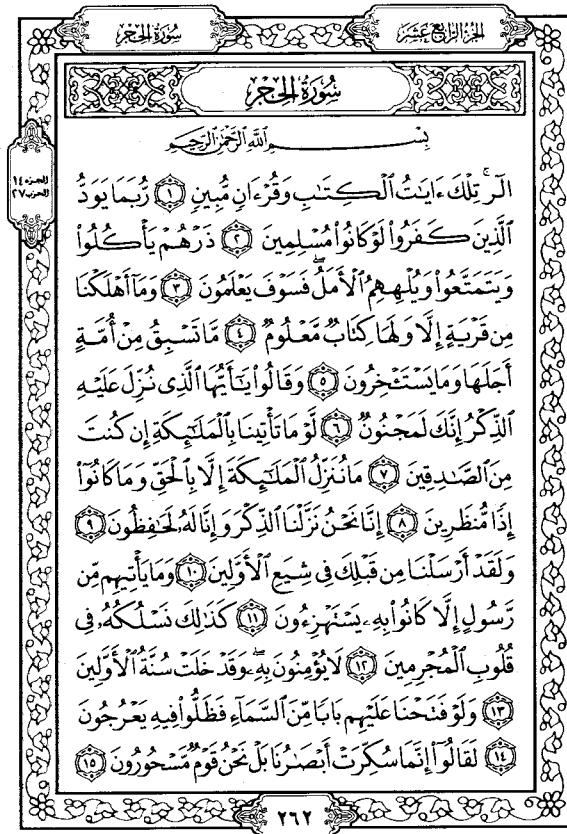 سُورَةُ الحِجْرِ
الجُزْءُ الرَّابِعَ عَشَرَ
سُورَةُ الحِجْرِ
بِسْمِ اللَّهِ الرَّحْمَٰنِ الرَّحِيمِ
الجزء ١٤
الحزب ٢٧
الٓرۚ تِلْكَ ءَايَٰتُ ٱلْكِتَٰبِ وَقُرْءَانٍ مُّبِينٍ ١ رُّبَمَا يَوَدُّ
ٱلَّذِينَ كَفَرُوا۟ لَوْ كَانُوا۟ مُسْلِمِينَ ٢ ذَرْهُمْ يَأْكُلُوا۟
وَيَتَمَتَّعُوا۟ وَيُلْهِهِمُ ٱلْأَمَلُۖ فَسَوْفَ يَعْلَمُونَ ٣ وَمَآ أَهْلَكْنَا
مِن قَرْيَةٍ إِلَّا وَلَهَا كِتَابٌ مَّعْلُومٌ ٤ مَّا تَسْبِقُ مِنْ أُمَّةٍ
أَجَلَهَا وَمَا يَسْتَـْٔخِرُونَ ٥ وَقَالُوا۟ يَٰٓأَيُّهَا ٱلَّذِى نُزِّلَ عَلَيْهِ
ٱلذِّكْرُ إِنَّكَ لَمَجْنُونٌ ٦ لَّوْ مَا تَأْتِينَا بِٱلْمَلَٰٓئِكَةِ إِن كُنتَ
مِنَ ٱلصَّٰدِقِينَ ٧ مَا نُنَزِّلُ ٱلْمَلَٰٓئِكَةَ إِلَّا بِٱلْحَقِّ وَمَا كَانُوٓا۟
إِذًا مُّنظَرِينَ ٨ إِنَّا نَحْنُ نَزَّلْنَا ٱلذِّكْرَ وَإِنَّا لَهُۥ لَحَٰفِظُونَ ٩
وَلَقَدْ أَرْسَلْنَا مِن قَبْلِكَ فِى شِيَعِ ٱلْأَوَّلِينَ ١٠ وَمَا يَأْتِيهِم مِّن
رَّسُولٍ إِلَّا كَانُوا۟ بِهِۦ يَسْتَهْزِءُونَ ١١ كَذَٰلِكَ نَسْلُكُهُۥ فِى
قُلُوبِ ٱلْمُجْرِمِينَ ١٢ لَا يُؤْمِنُونَ بِهِۦۖ وَقَدْ خَلَتْ سُنَّةُ ٱلْأَوَّلِينَ
١٣ وَلَوْ فَتَحْنَا عَلَيْهِم بَابًا مِّنَ ٱلسَّمَآءِ فَظَلُّوا۟ فِيهِ يَعْرُجُونَ
١٤ لَقَالُوٓا۟ إِنَّمَا سُكِّرَتْ أَبْصَٰرُنَا بَلْ نَحْنُ قَوْمٌ مَّسْحُورُونَ ١٥
٢٦٢